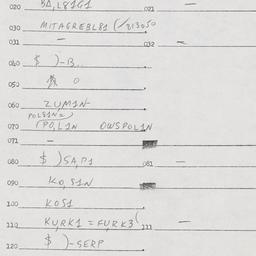 020 BA,L81G1 021 —
030 MITAGREBL81 (/213050
031 — 032 —
040 $ )-B..
050 0
060 ZUM1N
POL81N=)
070 (PO,L1N OWSPOL1N
071 —
080 $ )SA,P1 081 —
090 KO,S1N
100 KOS1
110 KURK1=FURK3( 111 —
120 $ )-SERP